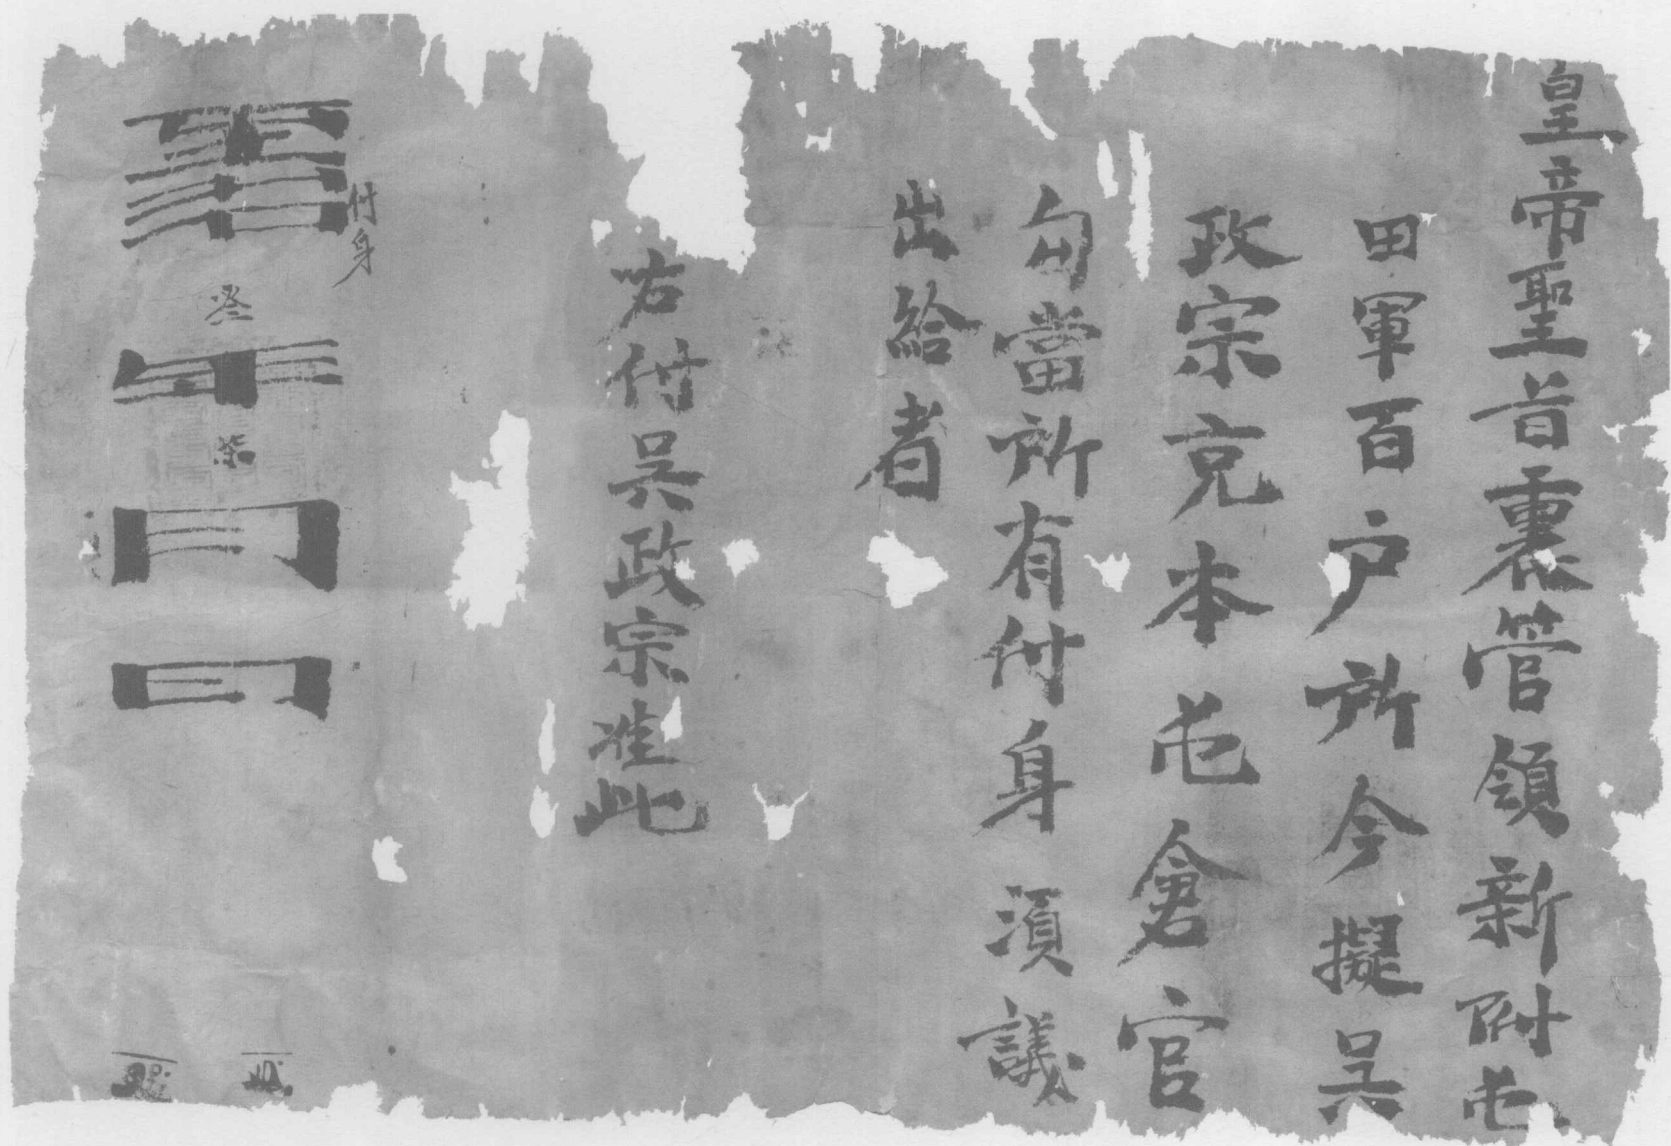 皇帝聖旨裏管領新附屯
田軍百户所今擬吳
政宗充本屯倉官
勾當所有付身須議
出給者
右付吳政宗准此
付身
叁年柒月日